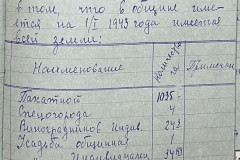 в том, что в общине име-
ется на 1/I 1943 года имеется
всей земли:
Наименование Количество га Примечан
Пахатной 1035 -
Спецогорода 4
Виноградников Индив. 243
Усадьба общинная 1
Индивидуальн 34